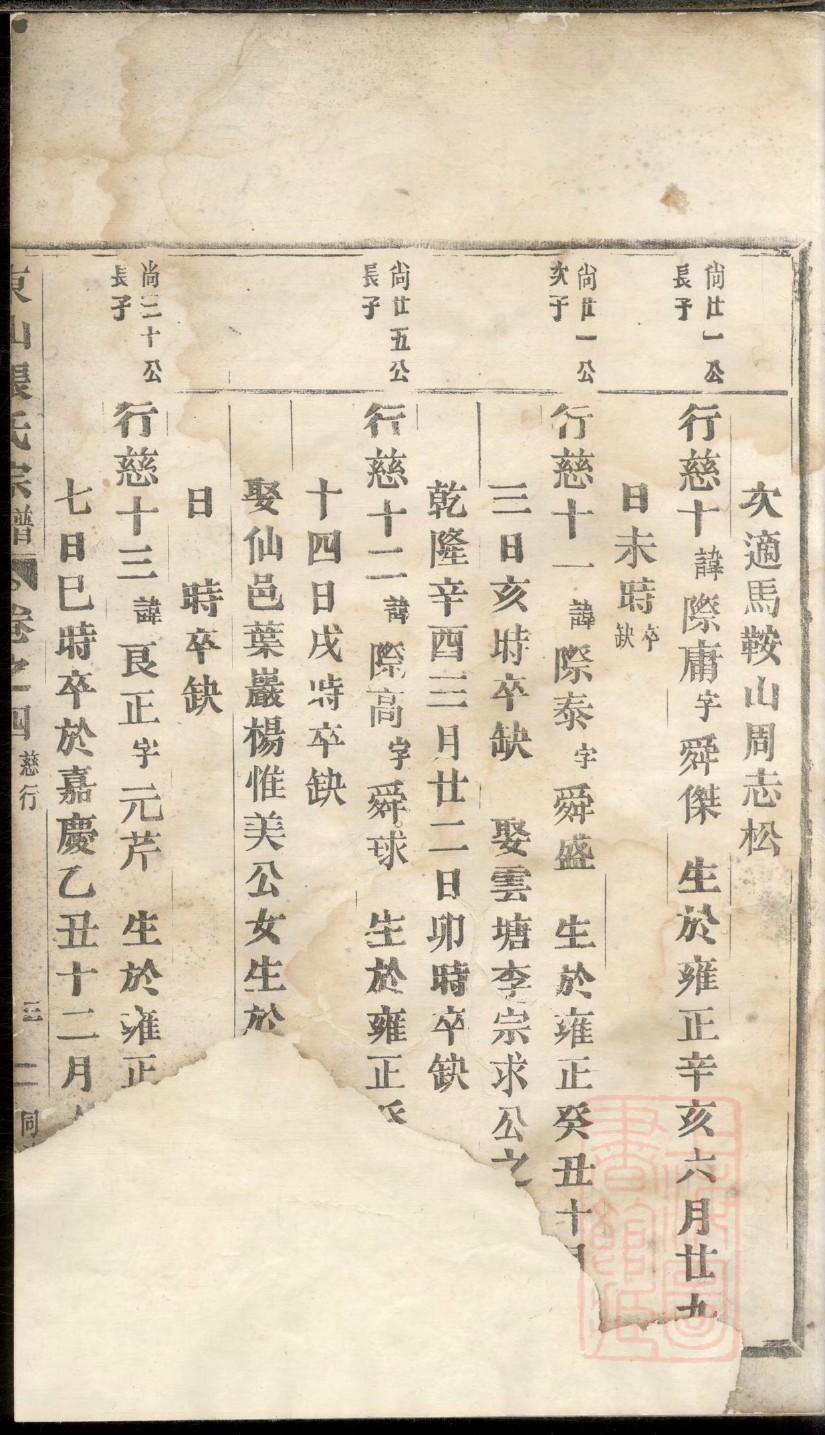 次適馬鞍山周志松
尚廿一公
長子
行慈十諱際庸字舜傑 生於雍正辛亥六月廿九
日未時卒缺
尚廿一公
次子
行慈十一諱際泰字舜盛 生於雍正癸丑十
三日亥時卒缺 娶雲塘李宗求公之
乾隆辛酉三月廿二日卯時卒缺
尚廿五公
長子
行慈十二諱際高字舜球 生於雍正
十四日戌時卒缺
娶仙邑葉巖楊惟美公女生於
日 時卒缺
尚三十公
長子
行慈十三諱良正字元芹 生於雍正
七日巳時卒於嘉慶乙丑十二月
東山張氏宗譜 卷之四 慈行 三 二 同